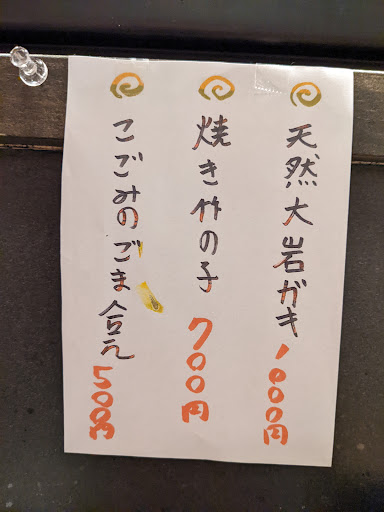 天然大岩ガキ 1000円
焼き竹の子 700円
こごみのごま合え 500円